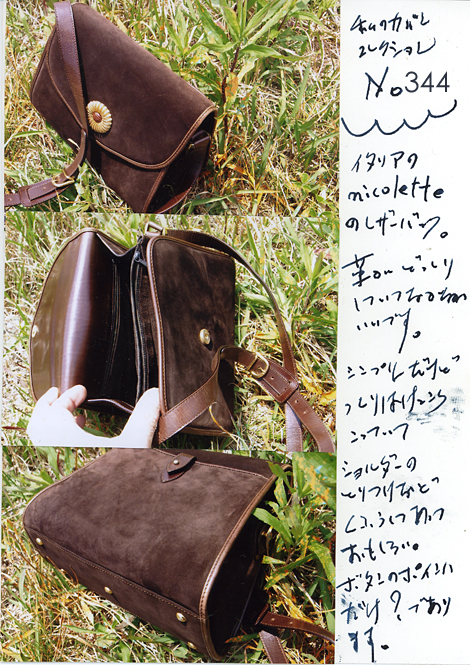 私のカバン
コレクション
No 344
イタリアの
nicolette
のレザーバッグ。
革がどっしり
していてなかなか
いいです。
シンプルだけど
こっていて
ショルダーの
とりつけなど
おもしろい。
ボタンのポイント
だけ?であり
ます。